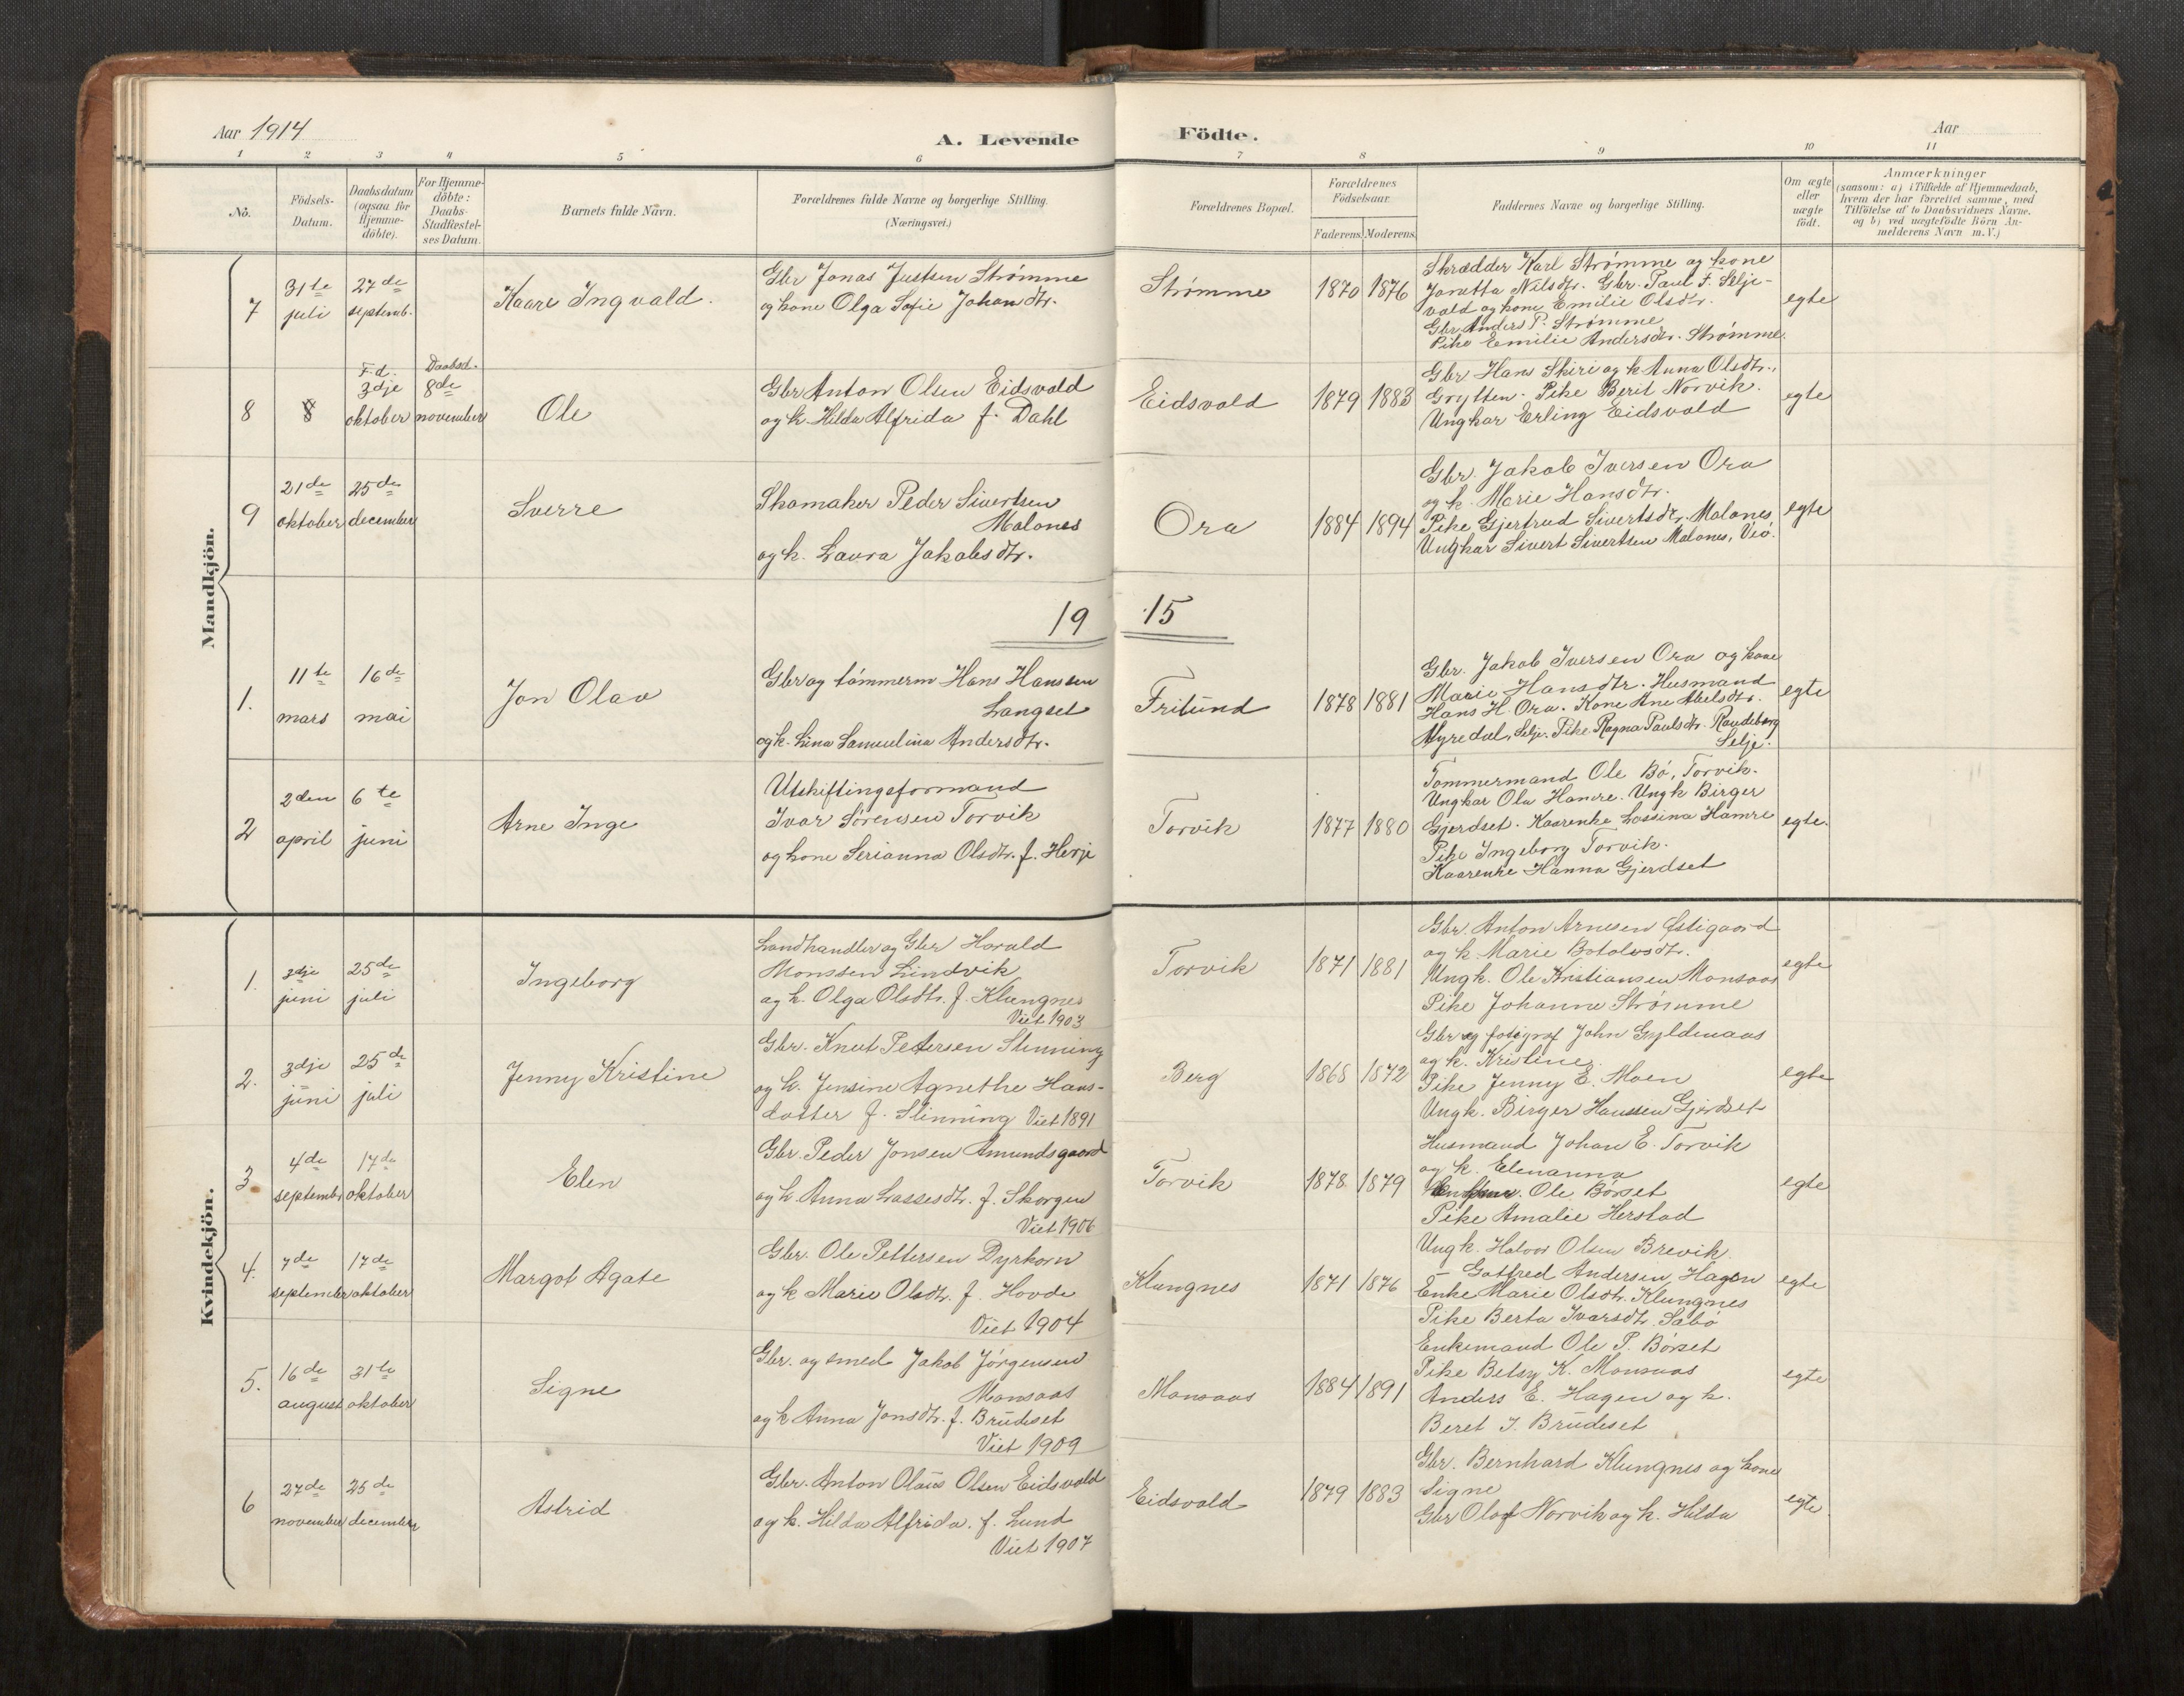 Aar 1914
A. Levende
Födte.
Aar
1 2 3 4 5 6 7 8 9 10 11
No.
Födsels-
Datum.
Daabsdatum
(ogsaa for
Hjemme-
döbte).
For Hjemme-
döbte:
Daabs-
Stadfæstel-
ses Datum.
Barnets fulde Navn.
Forældrenes fulde Navne og borgerlige Stilling.
(Næringsvei.)
Forældrenes Bopæl.
Forældrenes
Födselsaar.
Faderens. Moderens.
Faddernes Navne og borgerlige Stilling.
Om ægte
eller
uægte
födt.
Anmærkninger
(saasom: a) i Tilfælde af Hjemmedaab,
hvem der har forrettet samme, med
Tilföielse af to Daabsvidners Navne.
og b) ved uægtefödte Börn An-
melderens Navn m. V.)
Mandkjön.
7
31te
juli
27de
septemb.
Kaare Ingvald.
Gbr Jonas Justsen Strømme
og kone Olga Sofie Johandtr.
Strømme
1870 1876
Skrædder Karl Strømme og kone
Jonetta Nilsdtr. Gbr. Paul F. Selje-
vold og kone Emilie Olsdtr.
Gbr Anders P. Strømme
Pike Emilie Andersdtr. Strømme.
egte
8
8
F.d.
3dje
oktober
Daabsd.
8de
november
Ole
Gbr Anton Olsen Eidsvold
og k. Hilda Alfrida f. Dahl
Eidsvold
1879 1883
Gbr Hans Skiri og k Anna Olsdtr.,
Grytten. Pike Berit Norvik.
Ungkar Erling Eidsvold
egte
9
21de
oktober
25de
december
Sverre
Skomaker Peder Sivertsen
Malones
og k. Laura Jakobsdtr.
Ora
1884 1894
Gbr Jakob Iversen Ora
og k. Marie Hansdtr.
Pike Gjertrud Sivertsdtr. Malones
Ungkar Sivert Sivertsen Malones, Veø.
egte
19 15
1.
11te
mars
16de
mai
Jon Olav
Gbr og tømmerm Hans Hanssen
Langset
og k. Lina Samuelina Andersdtr.
Frilund
1878 1881
Gbr. Jakob Iversen Ora og kone
Marie Hansdtr. Husmand
Hans H. Ora. Kone Ane Abelsdtr.
Myredal, Selje. Pike Ragna Paulsdtr. Raudeberg
Selje.
egte
2
2den
april
6te
juni
Arne Inge
Utskiftingsformand
Ivar Sørensen Torvik
og kone Serianna Olsdtr. f. Herje
Torvik
1877 1880
Tømmermand Ole Bø, Torvik.
Ungkar Ola Hamre. Ungk Birger
Gjerdset. Kaarenke Lassina Hamre
Pike Ingeborg Torvik.
Kaarenke Hanna Gjerdset
egte.
Kvindekjön.
1.
3dje
juni
25de
juli
Ingeborg
Landhandler og Gbr Harald
Monssen Lindvik
og k. Olga Olsdtr. f. Klungnes
Viet 1903
Torvik
1871 1881
Gbr. Anton Arnesen Østigaard
og k. Marie Botolvsdtr.
Ungk. Ole Kristiansen Monsaas
Pike Johanna Strømme
egte
2.
3dje
juni
25de
juli
Jenny Kristine
Gbr. Knut Petersen Slinning
og k. Jensine Agnethe Hans-
datter f. Slinning Viet 1891
Berg
1868 1872
Gbr og fotograf John Gyldenaas
og k. Kristine.
Pike Jenny E. Moen
Ungk. Birger Hanssen Gjerdset
egte
3
4de
septembr
17de
oktober
Elen
Gbr. Peder Jonsen Amundsgaard
og k Anna Lassesdtr. f. Skorgen
Viet 1906
Torvik
1878 1879
Husmand Johan E. Torvik
og k. Elenanna
Ole Børset
Pike Amalie Herstad
egte
4.
7de
september
17de
oktober
Margot Agate
Gbr. Ole Pettersen Dyrkorn
og k Marie Olsdtr. f. Hovde
Viet 1904
Klungnes
1871 1876
Ungk. Halvor Olsen Brevik
— Gotfred Andersen Hagen
Enke Marie Olsdtr. Klungnes
Pike Berta Ivarsdtr. Sæbø
egte
5.
16de
august
31te
oktober
Signe
Gbr. og smed Jakob Jørgensen
Monsaas
og k Anna Jonsdtr. f. Brudeset
Viet 1909
Monsaas
1884 1891
Enkemand Ole P. Børset
Pike Betsy K. Monsaas
Anders E. Hagen og k.
Beret J. Brudeset
egte
6
27de
november
25de
december
Astrid
Gbr. Anton Olaus Olsen Eidsvold
og k. Hilda Alfrida. f. Lund
Viet 1907
Eidsvold
1879 1883
Gbr. Bernhard Klungnes og kone
Signe
Gbr Olaf Norvik og k. Hilda
egte